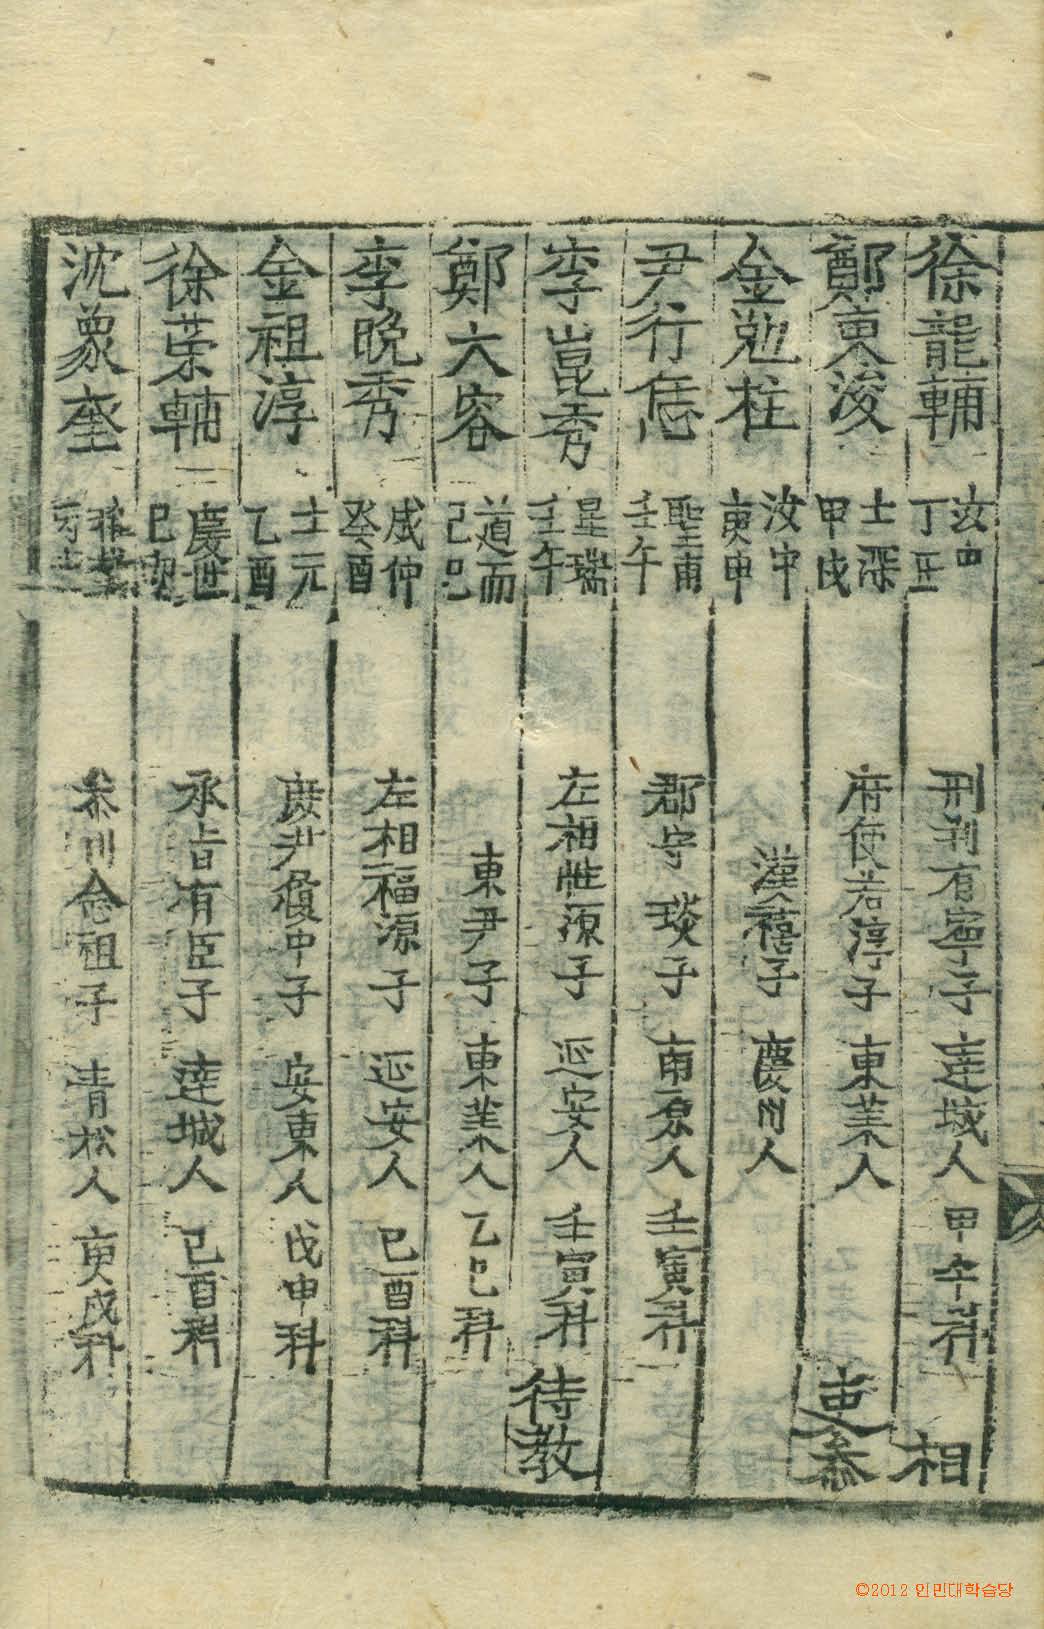 徐龍輔 汝中 丁丑 刑判有寧子 達城人 甲午科 相
鄭東浚 士深 甲戌 府使若淳子 東萊人 吏參
金勉柱 汝中 庚申 漢禧子 慶州人
尹行恁 聖甫 壬午 郡守琰子 南原人 壬寅科
李崑秀 星瑞 壬午 左相性源子 延安人 壬寅科 待教
鄭大容 道而 己巳 東尹子 東萊人 乙巳科
李晚秀 成仲 癸酉 左相福源子 延安人 己酉科
金祖淳 士元 乙酉 庶尹履中子 安東人 戊申科
徐榮輔 慶世 己卯 承旨有臣子 達城人 己酉科
沈象奎 穉教 丙戌 參判念祖子 青松人 庚戌科
©2012 인민대학습당